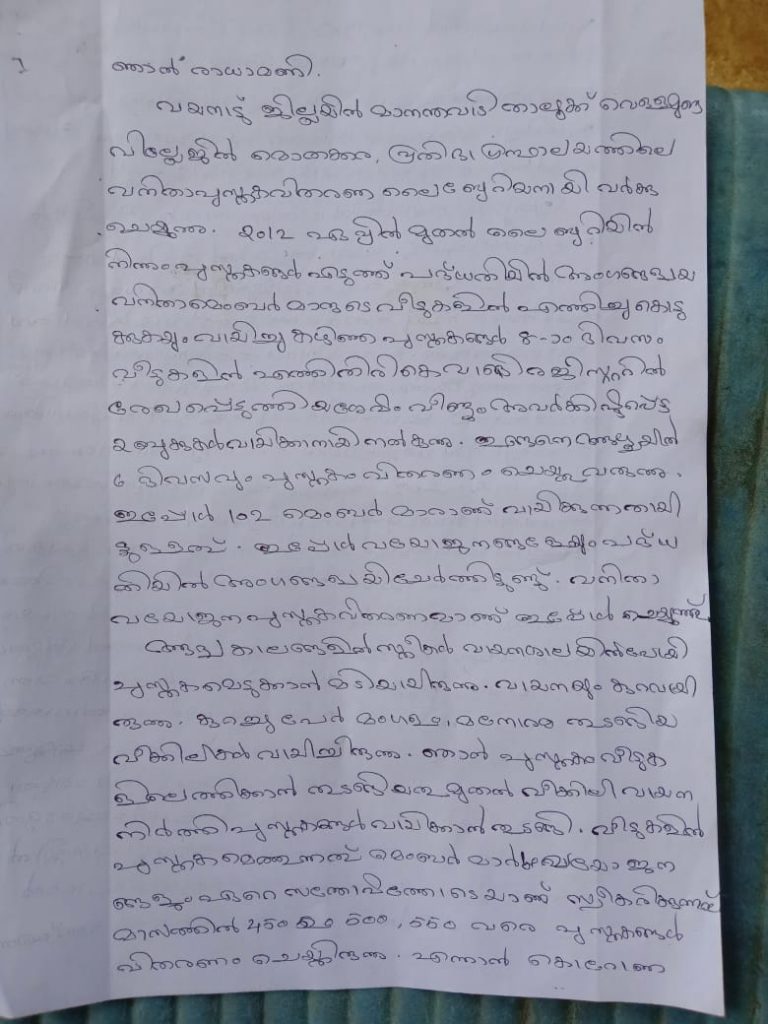 1
ഞാൻ രാധാമണി.
വയനാട്ട് ജില്ലയിൽ മാനന്തവാടി താലൂക്ക് വെള്ളമുണ്ട
വില്ലേജിൽ മൊതക്കര, പ്രതിഭാ ഗ്രന്ഥാലയത്തിലെ
വനിതാപുസ്തകവിതരണ ലൈബ്രേറിയനായി വർക്കു
ചെയ്യുന്നു. 2012 ഏപ്രിൽ മുതൽ ലൈബ്രറിയിൽ
നിന്നും പുസ്തകങ്ങൾ എടുത്ത് പദ്ധതിയിൽ അംഗങ്ങളായ
വനിതാമെംബർമാരുടെ വീടുകളിൽ എത്തിച്ചു കൊടു
ക്കുകയും വായിച്ചു കഴിഞ്ഞ പുസ്തകങ്ങൾ 8-ാം ദിവസം
വീടുകളിൽ എത്തി തിരികെ വാങ്ങി രജിസ്റ്ററിൽ
രേഖപ്പെടുത്തിയശേഷം വീണ്ടും അവർക്കിഷ്ടപ്പെട്ട
2 ബുക്കുകൾ വായിക്കാനായി നൽകുന്നു. ഇങ്ങനെ ആഴ്ചയിൽ
6 ദിവസവും പുസ്തകം വിതരണം ചെയ്തു വരുന്നു.
ഇപ്പോൾ 102 മെംബർമാരാണ് വായിക്കുന്നതായി
ട്ടുള്ളത്. ഇപ്പോൾ വയോജനങ്ങളേയും പദ്ധ
തിയിൽ അംഗങ്ങളായി ചേർത്തിട്ടുണ്ട്. വനിതാ
വയോജന പുസ്തകവിതരണമാണ് ഇപ്പോൾ ചെയ്യുന്നത്.
ആദ്യ കാലങ്ങളിൽ സ്ത്രീകൾ വായനശാലയിൽപോയി
പുസ്തകമെടുക്കാൻ മടിയായിരുന്നു. വായനയും കുറവായി
രുന്നു. കുറച്ചു പേർ മംഗളം, മനോരമ തുടങ്ങിയ
വീക്കിലികൾ വായിച്ചിരുന്നു. ഞാൻ പുസ്തകം വീടുക
ളിലെത്തിക്കാൻ തുടങ്ങിയതുമുതൽ വീക്കിലി വായന
നിർത്തി പുസ്തകങ്ങൾ വായിക്കാൻ തുടങ്ങി. വീടുകളിൽ
പുസ്തകമെത്തുന്നത് മെംബർമാർ വയോജന
ങ്ങളും ഏറെ സന്തോഷത്തോടെയാണ് സ്വീകരിക്കുന്നത്
മാസത്തിൽ 450 ഉം 500, 550 വരെ പുസ്തകങ്ങൾ
വിതരണം ചെയ്തിരുന്നു. എന്നാൽ കൊറോണ